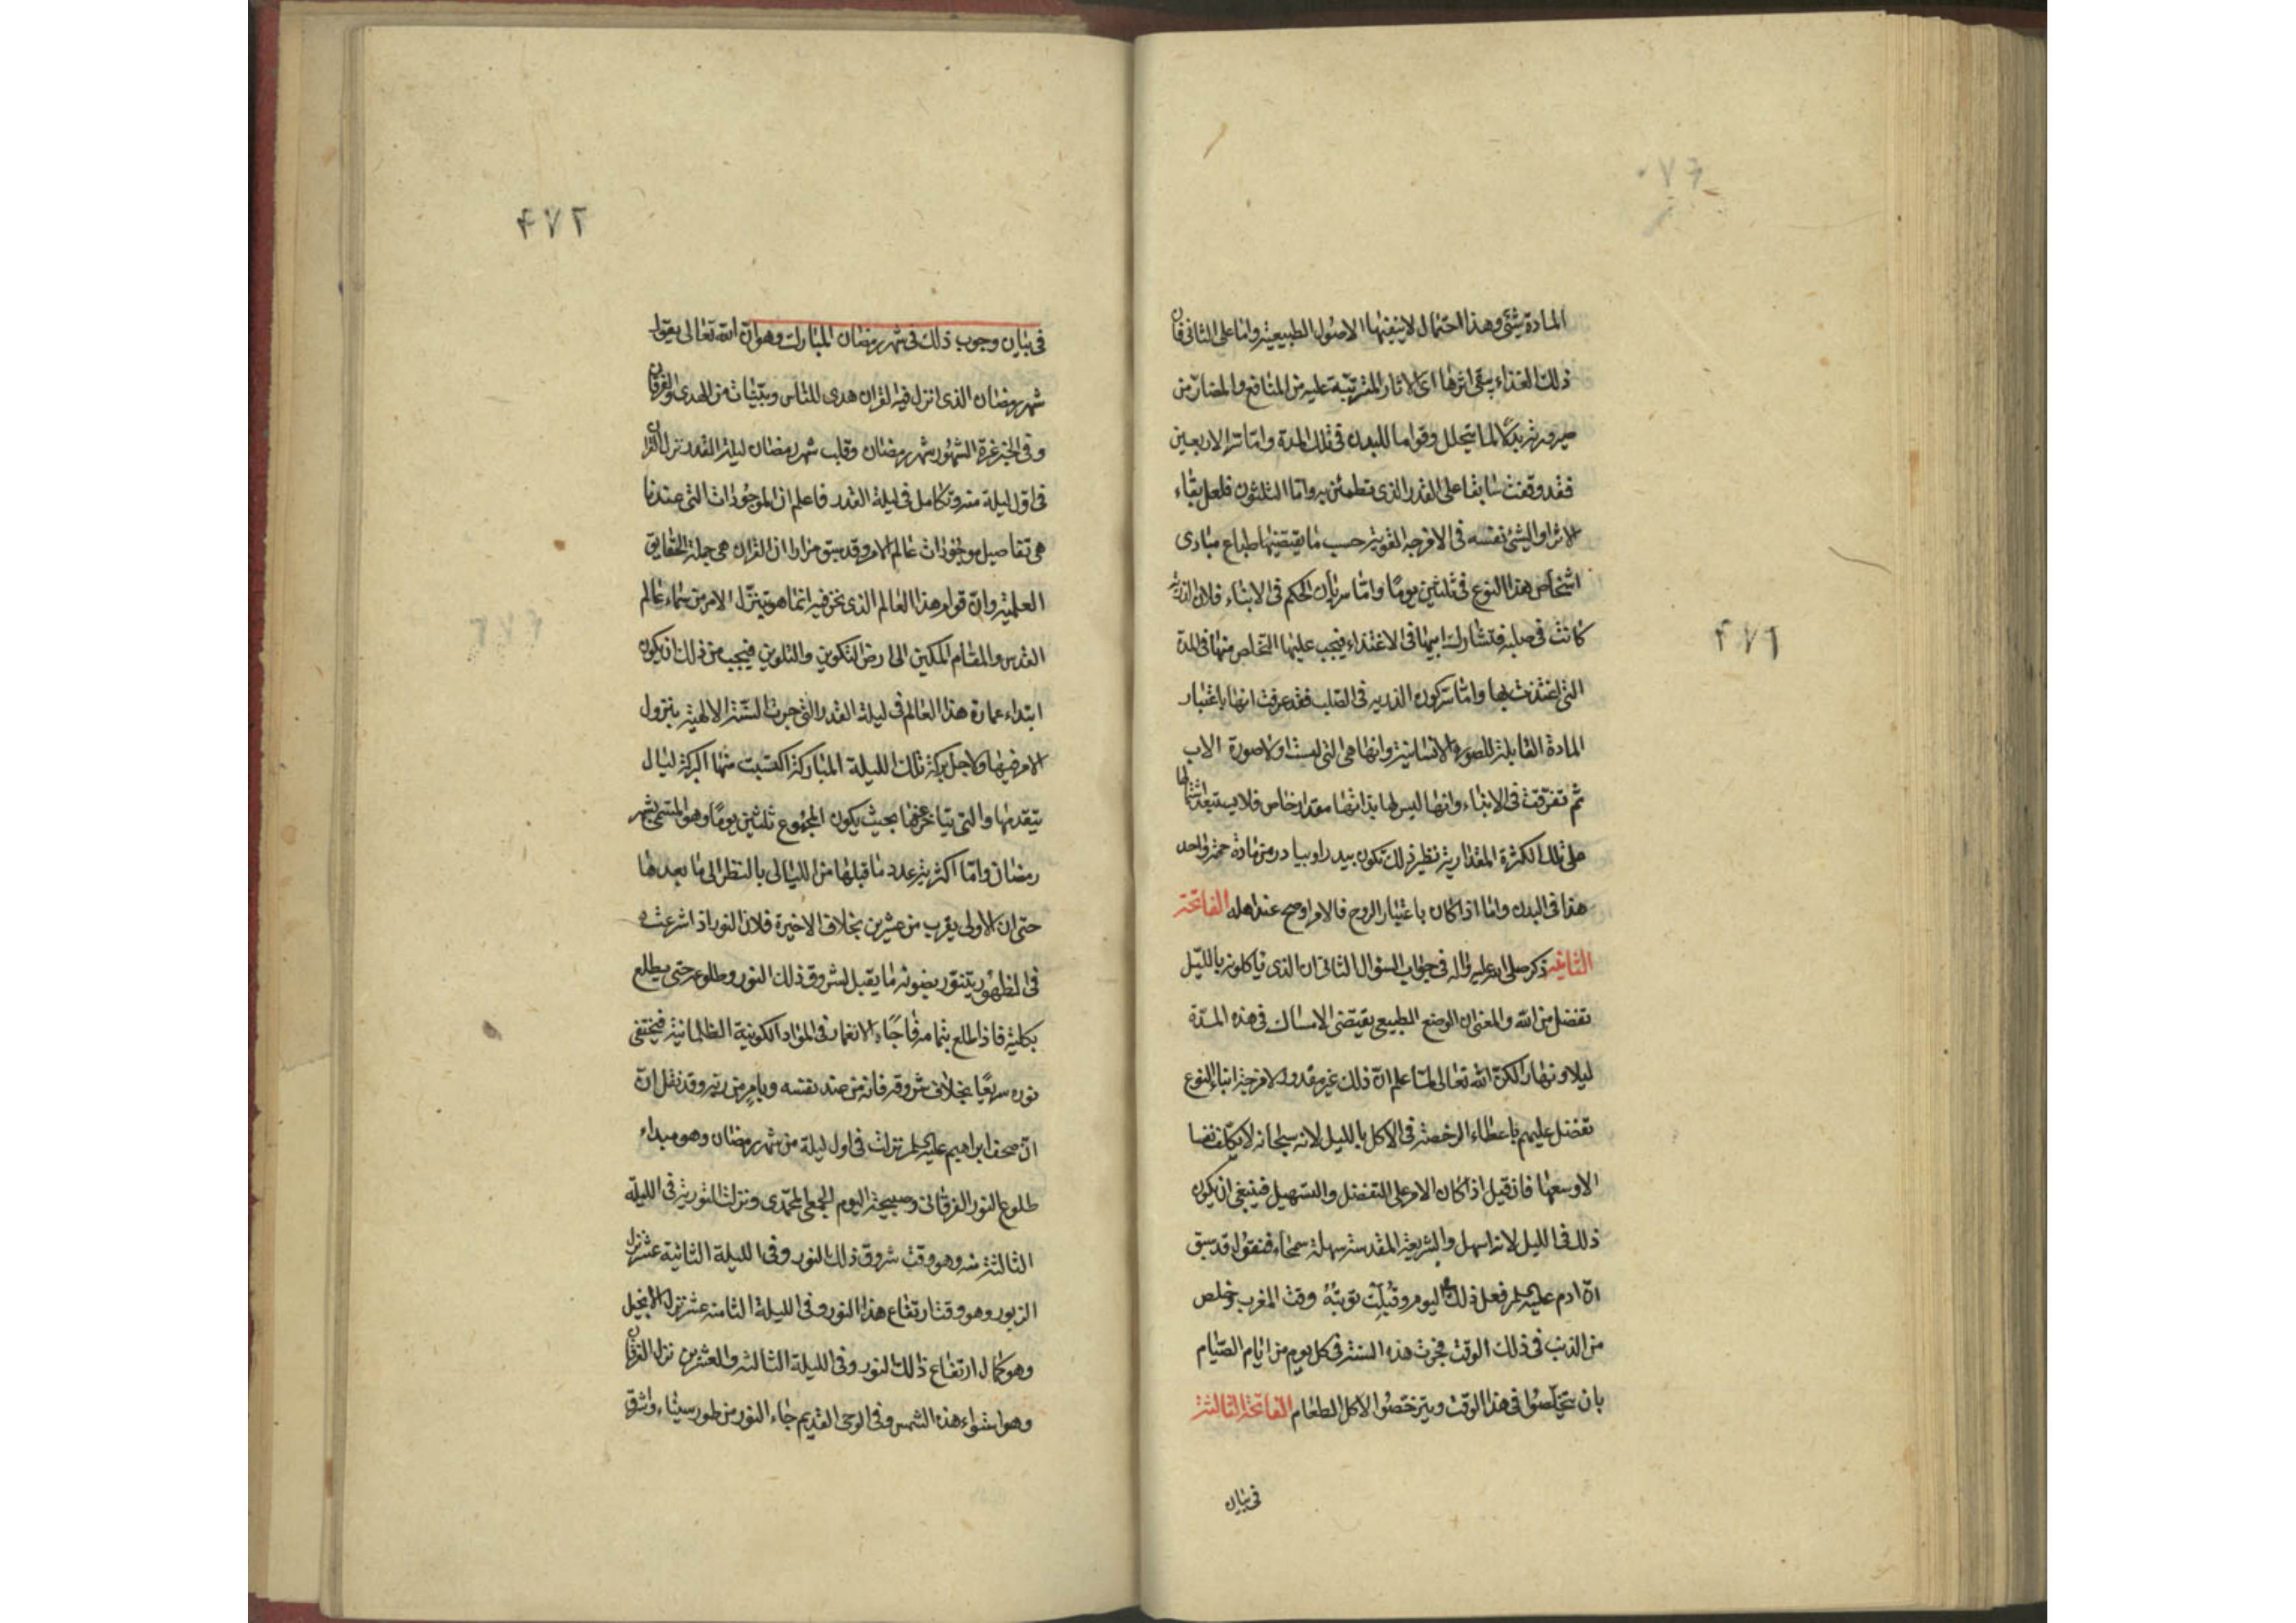 المادة بشئ وهذا احتمال لا ينفيها الاصول الطبيعية واما على الثانى فان
ذلك الغذاء يبقى اثرها اى الاثار المترتبة عليه من المنافع والمضار من
صيرورته بدلا لما يتحلل وقواما للبدن فى تلك المدة واما تر الاربعين
فقد وقفت سابقا على القدر الذى تطمئن به واما الثلثون فلعل بقاء
الاثر او الشئ نفسه فى الامزجة القوية حسب ما يقتضيها طباع مبادى
اشخاص هذا النوع فى ثلثين يوما واما سريان الحكم فى الابناء فلان الذرية
كانت فى صلبه فتشارك ابيها فى الاغتذاء فيجب عليها التخلص منها فى المدة
التى اغتذت بها واما سر كون الذرية فى الصلب فقد عرفت انها باعتبار
المادة القابلة للصورة الانسانية وانها هى التى لبست اولا صورة الاب
ثم تفرقت فى الابناء وانها ليس لها بذاتها مقدار خاص فلا يستبعد اشتمالها
على تلك الكثرة المقدارية نظير ذلك تكون بيدر او بيادر من مادة حبة واحد
هذا فى البدن واما اذا كان باعتبار الروح فالامر اوضح عند اهله الفاتحة
الثانية ذكر صلى الله عليه واله فى جواب السؤال الثانى ان الذى ياكلونه بالليل
تفضل من الله والمعنى ان الوضع الطبيعى يقتضى الامساك فى هذه المدة
ليلا ونهارا لكن الله تعالى لما علم ان ذلك غير مقدور لامزجة ابناء النوع
تفضل عليهم باعطاء الرخصة فى الاكل بالليل لانه سبحانه لا يكلف نفسا
الا وسعها فان قيل اذا كان الامر على التفضل والتسهيل فينبغى ان يكون
ذلك فى الليل لانه اسهل والشريعة المقدسة سهلة سمحاء فنقول قد سبق
ان ادم عليه السلم فعل ذلك اليوم وقبلت توبته وقت المغرب وخلص
من الذنب فى ذلك الوقت فجرت هذه السنة فى كل يوم من ايام الصيام
بان يتخلصوا فى هذا الوقت ويترخصوا لاكل الطعام الفاتحة الثالثة
فى بيان
٤٧١
فى بيان وجوب ذلك فى شهر رمضان المبارك وهو ان الله تعالى يقول
شهر رمضان الذى انزل فيه القران هدى للناس وبينات من الهدى والفرقان
وفى الخبر غرة الشهور شهر رمضان وقلب شهر رمضان ليلة القدر نزل القران
فى اول ليلة منه وتكامل فى ليلة القدر فاعلم ان الموجودات التى عندنا
هى تفاصيل موجودات عالم الامر وقد سبق مرارا ان القران هى جملة الحقايق
العلمية وان قوام هذا العالم الذى نحن فيه انما هو بتنزل الامر من سماء عالم
القدس والمقام المكين الى ارض التكوين والتلوين فيجب من ذلك ان يكون
ابتداء عمارة هذا العالم فى ليلة القدر التى جرت السنة الالهية بنزول
الامر فيها ولاجل بركة تلك الليلة المباركة اكتسبت منها البركة ليال
يتقدمها والتى يتاخر عنها بحيث يكون المجموع ثلثين يوما وهو المسمى بشهر
رمضان واما اكثرية عدد ما قبلها من الليالى بالنظر الى ما بعدها
حتى ان الاولى يقرب من عشرين بخلاف الاخيرة فلان النور اذا شرعت
فى الظهور يتنور بضوئه ما يقبل لشروق ذلك النور وطلوعه حتى يطلع
بكليته فاذا طلع بتمامه فاجاء الانغمار فى المواد الكونية الظلمانية فيختفى
نوره سريعا بخلاف شروقه فانه من عند نفسه وبامر من ربه وقد نقل ان
ان صحف ابراهيم عليه السلم نزلت فى اول ليلة من شهر رمضان وهو مبداء
طلوع النور الفرقانى وصبيحة اليوم الجمعى المحمدى ونزلت التورية فى الليلة
الثالثة منه وهو وقت شروق ذلك النور وفى الليلة الثانية عشر نزل
الزبور وهو وقت ارتفاع هذا النور وفى الليلة الثامنه عشر نزل الانجيل
وهو كمال ارتفاع ذلك النور وفى الليلة الثالثه والعشرين نزل الفرقان
وهو استواء هذه الشمس وفى الوحى القديم جاء النور من طور سيناء وشرق
٤٧٢